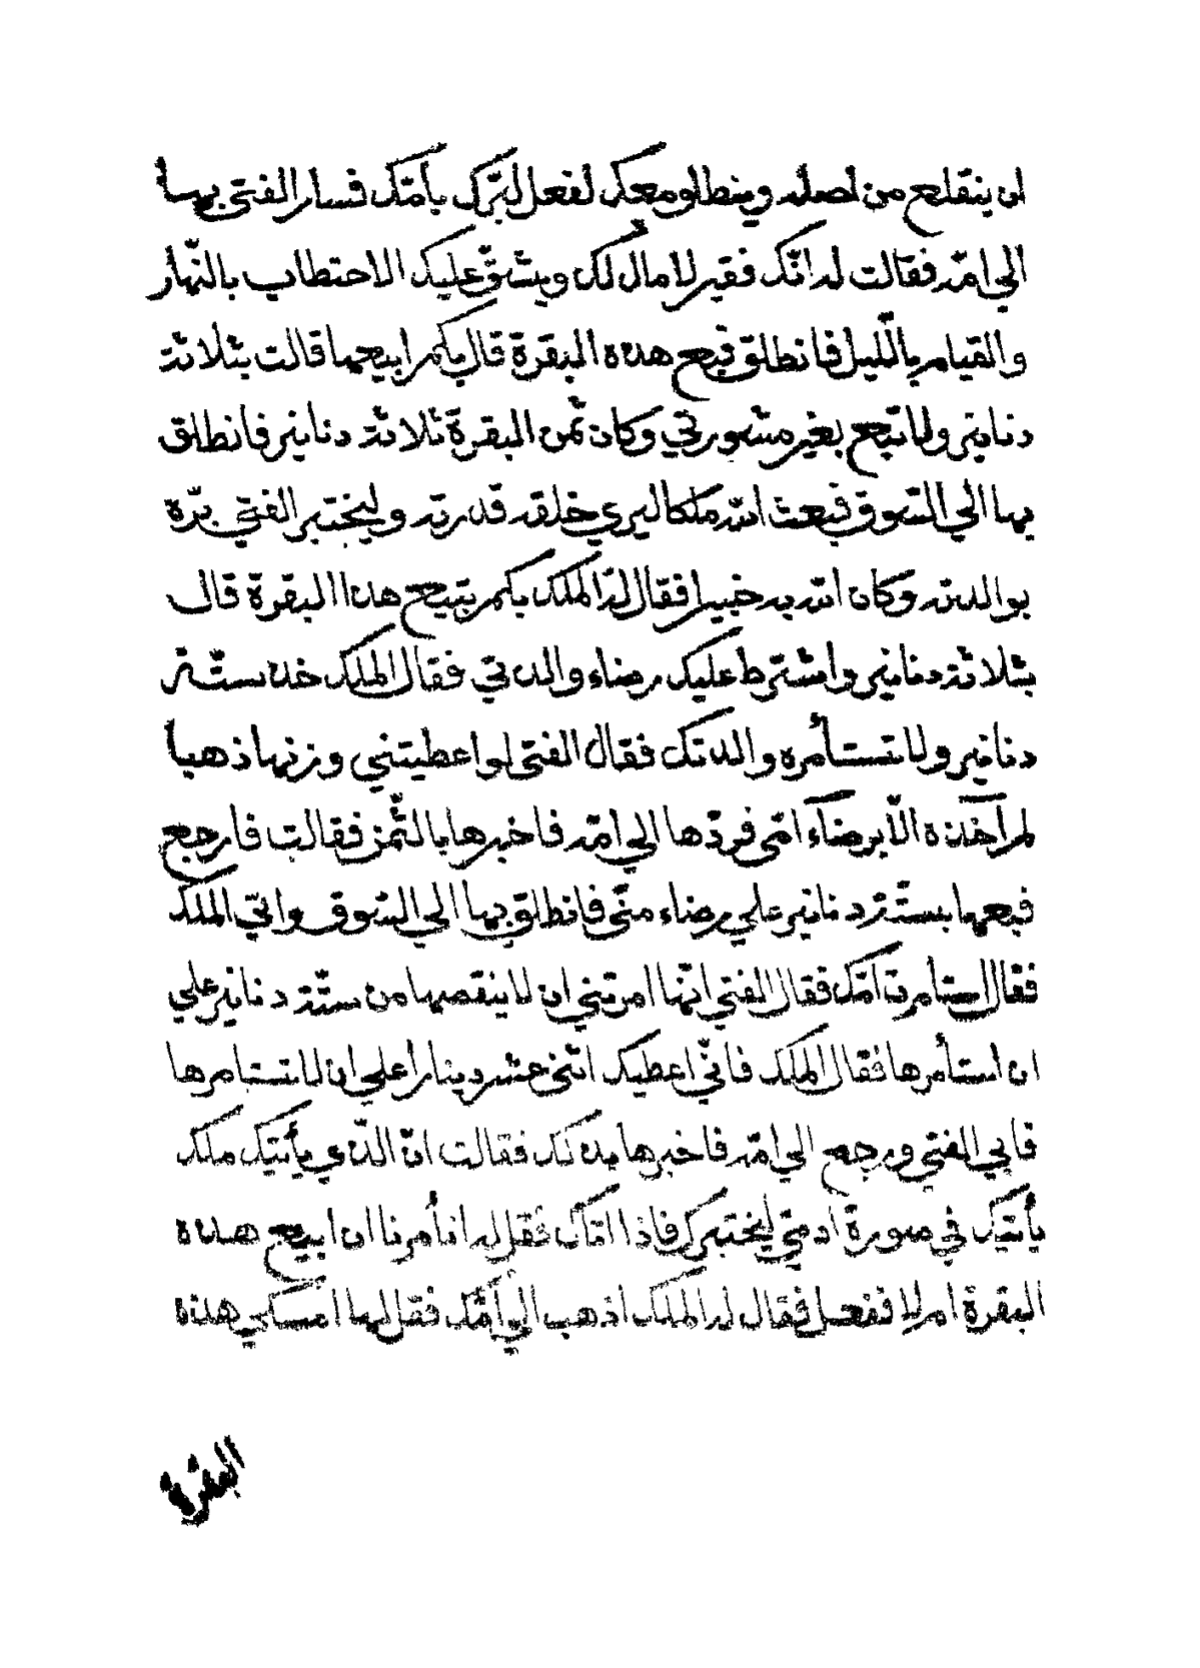 ان ينقلع من اصله وينطلو معك لفعل لبرّك بأمّك فسار الفتى بها
الي امّه فقالت له انّك فقير لا مال لك ويشقّ عليك الاحتطاب بالنّهار
والقيام بالّليل فانطلق فبع هذه البقرة قال بكم ابيعها قالت بثلاثة
دنانير ولا تبع بغير مشورتي وكان ثمن البقرة ثلاثة دنانير فانطلق
بها الي السّوق فبعث الله ملكا ليري خلقه قدرته وليختبر الفتي برّه
بوالدته وكان الله به خبيرا فقال له الملك بكم تبيع هذا البقرة قال
بثلاثة دنانير واشترط عليك رضاء والدتي فقال الملك خذ ستّة
دنانير ولا تستأمره والدتك فقال الفتى لو اعطيتني وزنها ذهبا
لم آخذه الاّ برضآء امّى فردّها الي امّه فاخبرها بالثّمن فقالت فارجع
فبعها بستّة دنانير علي رضاء منّى فانطلق بها الي السّوق واتي الملك
فقال استأمرت امّك فقال الفتي انّها امرتني ان لا ينقصها من ستّة دنانير علي
ان استأمرها فقال الملك فانّي اعطيك اثني عشر دينارا علي ان لا تستامرها
فابي الفتي ورجع الي امّه فاخبرها بذلك فقالت انّ الّذي يأتيك ملك
يأتيك في صورة ادمي ليختبرك فاذا اتاك فقل له اتأمرنا ان ابيع هذه
البقرة ام لا ففعل فقال له الملك اذهب الي امّك فقل لها امسكي هذه
البقرة